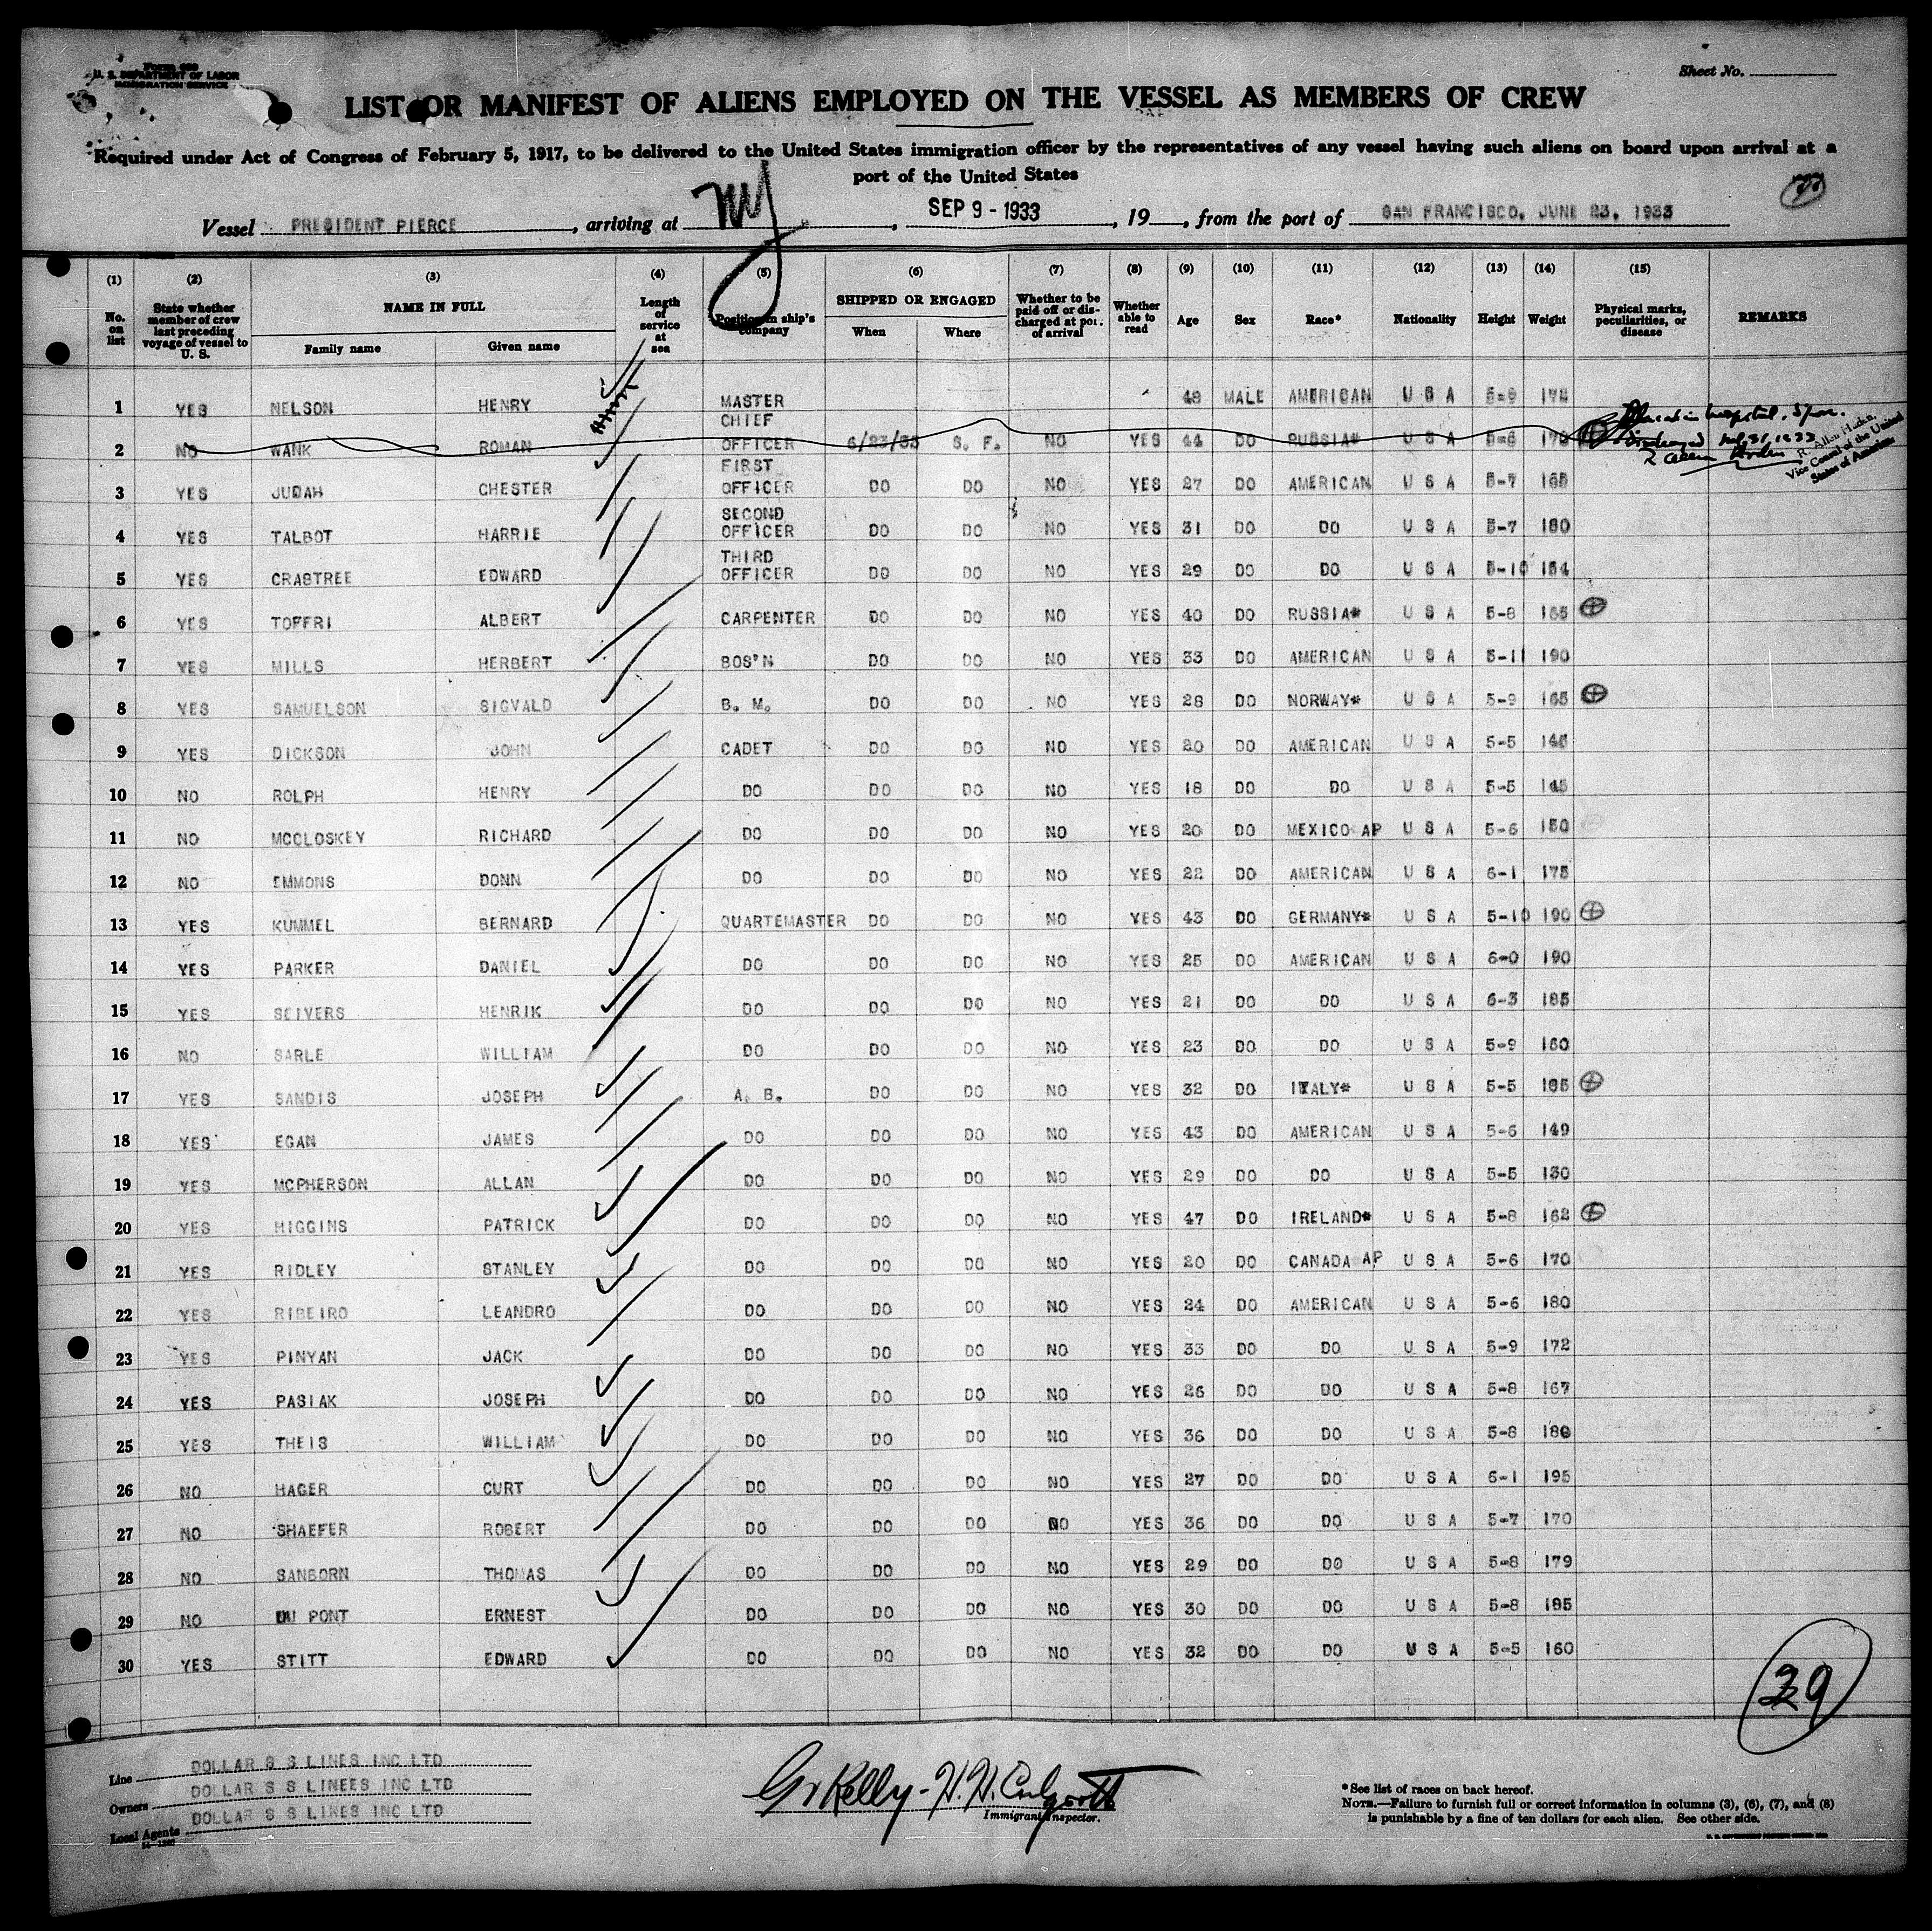 Form 680
U. S. DEPARTMENT OF LABOR
IMMIGRATION SERVICE
Sheet No.
LIST OR MANIFEST OF ALIENS EMPLOYED ON THE VESSEL AS MEMBERS OF CREW
Required under Act of Congress of February 5, 1917, to be delivered to the United States immigration officer by the representatives of any vessel having such aliens on board upon arrival at a
port of the United States
Vessel PRESIDENT PIERCE, arriving at NY, SEP 9 - 1933, 19, from the port of SAN FRANCISCO, JUNE 23, 1933
(1) (2) (3) (4) (5) (6) (7) (8) (9) (10) (11) (12) (13) (14) (15)
No. on list State whether member of crew last preceding voyage of vessel to U. S. NAME IN FULL Family name Given name Length of service at sea Position in ship's company SHIPPED OR ENGAGED When Where Whether to be paid off or discharged at port of arrival Whether able to read Age Sex Race* Nationality Height Weight Physical marks, peculiarities, or disease REMARKS
1 YES NELSON HENRY MASTER 48 MALE AMERICAN U S A 5-9 172
2 NO WANK ROMAN CHIEF OFFICER 6/23/33 S. F. NO YES 44 DO RUSSIA* U S A 5-6 170
R. Allen Haden
Vice Consul of the United
States of America
3 YES JUDAH CHESTER FIRST OFFICER DO DO NO YES 27 DO AMERICAN U S A 5-7 165
4 YES TALBOT HARRIE SECOND OFFICER DO DO NO YES 31 DO DO U S A 5-7 180
5 YES CRABTREE EDWARD THIRD OFFICER DO DO NO YES 29 DO DO U S A 5-10 154
6 YES TOFFRI ALBERT CARPENTER DO DO NO YES 40 DO RUSSIA* U S A 5-8 165
7 YES MILLS HERBERT BOS'N DO DO NO YES 33 DO AMERICAN U S A 5-11 190
8 YES SAMUELSON SIGVALD B. M. DO DO NO YES 28 DO NORWAY* U S A 5-9 165
9 YES DICKSON JOHN CADET DO DO NO YES 20 DO AMERICAN U S A 5-5 146
10 NO ROLPH HENRY DO DO DO NO YES 18 DO DO U S A 5-5 145
11 NO MCCLOSKEY RICHARD DO DO DO NO YES 20 DO MEXICO AP U S A 5-6 150
12 NO EMMONS DONN DO DO DO NO YES 22 DO AMERICAN U S A 6-1 175
13 YES KUMMEL BERNARD QUARTEMASTER DO DO NO YES 43 DO GERMANY* U S A 5-10 190
14 YES PARKER DANIEL DO DO DO NO YES 25 DO AMERICAN U S A 6-0 190
15 YES SEIVERS HENRIK DO DO DO NO YES 21 DO DO U S A 6-3 185
16 NO SARLE WILLIAM DO DO DO NO YES 23 DO DO U S A 5-9 160
17 YES SANDIS JOSEPH A. B. DO DO NO YES 32 DO ITALY* U S A 5-5 165
18 YES EGAN JAMES DO DO DO NO YES 43 DO AMERICAN U S A 5-6 149
19 YES MCPHERSON ALLAN DO DO DO NO YES 29 DO DO U S A 5-5 130
20 YES HIGGINS PATRICK DO DO DO NO YES 47 DO IRELAND* U S A 5-8 162
21 YES RIDLEY STANLEY DO DO DO NO YES 20 DO CANADA AP U S A 5-6 170
22 YES RIBEIRO LEANDRO DO DO DO NO YES 24 DO AMERICAN U S A 5-6 180
23 YES PINYAN JACK DO DO DO NO YES 33 DO DO U S A 5-9 172
24 YES PASIAK JOSEPH DO DO DO NO YES 26 DO DO U S A 5-8 167
25 YES THEIS WILLIAM DO DO DO NO YES 36 DO DO U S A 5-8 180
26 NO HAGER CURT DO DO DO NO YES 27 DO DO U S A 6-1 195
27 NO SHAEFER ROBERT DO DO DO NO YES 36 DO DO U S A 5-7 170
28 NO SANBORN THOMAS DO DO DO NO YES 29 DO DO U S A 5-8 179
29 NO DU PONT ERNEST DO DO DO NO YES 30 DO DO U S A 5-8 185
30 YES STITT EDWARD DO DO DO NO YES 32 DO DO U S A 5-5 160
39
Line DOLLAR S S LINES INC LTD
Owners DOLLAR S S LINEES INC LTD
Local Agents DOLLAR S S LINES INC LTD
Immigrant Inspector.
*See list of races on back hereof.
NOTE.—Failure to furnish full or correct information in columns (3), (6), (7), and (8)
is punishable by a fine of ten dollars for each alien. See other side.